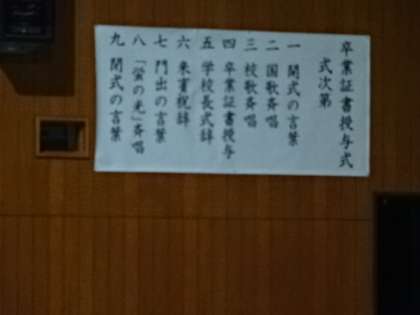 卒業証書授与式
式次第
一 開式の言葉
二 国歌斉唱
三 校歌斉唱
四 卒業証書授与
五 学校長式辞
六 来賓祝辞
七 門出の言葉
八 「蛍の光」斉唱
九 閉式の言葉